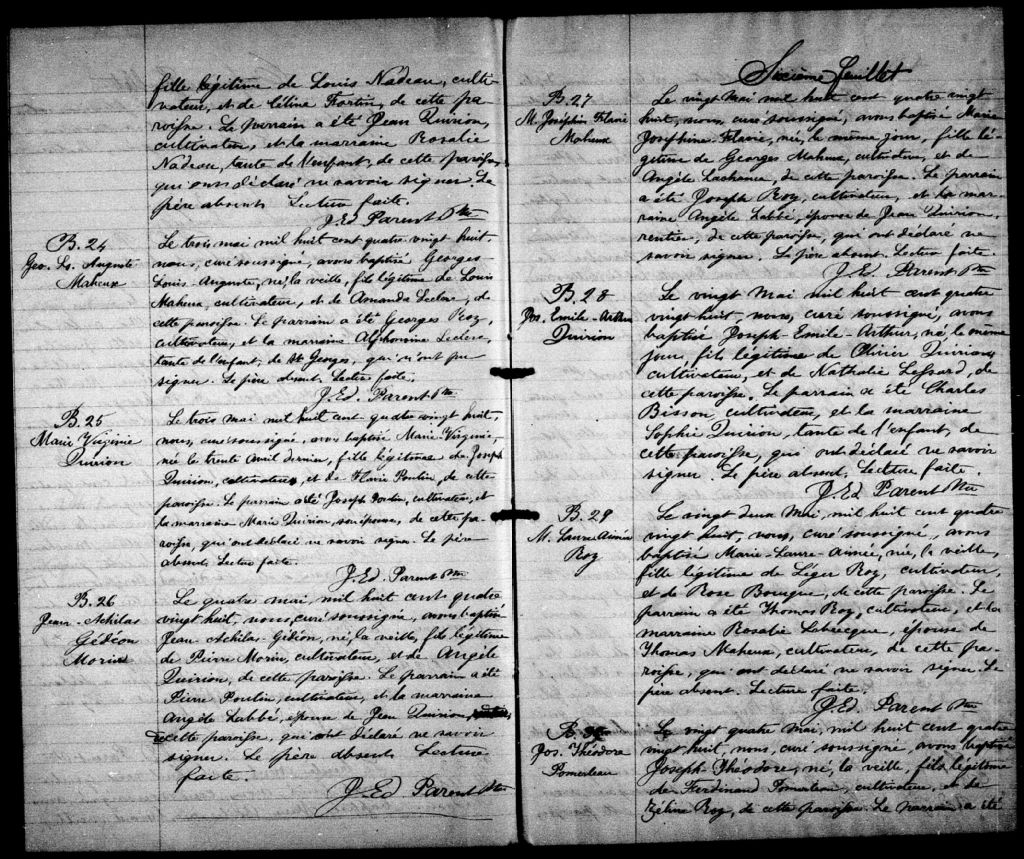 fille légitime de Louis Nadeau, culti-
vateur, et de Célina Fortin, de cette pa-
roisse. Le parrain a été Jean Quirion,
cultivateur, et la marraine Rosalie
Nadeau, tante de l'enfant, de cette paroisse,
qui ont déclaré ne savoir signer. Le
père absent. Lecture faite.
J. Ed. Parent Ptre
B. 24
Geo. Ls. Auguste
Maheux
Le trois mai mil huit cent quatre vingt huit,
nous, curé soussigné, avons baptisé Georges-
Louis-Auguste, né, la veille, fils légitime de Louis
Maheux, cultivateur, et de Amanda Leclerc, de
cette paroisse. Le parrain a été Georges Roy,
cultivateur, et la marraine Alphonsine Leclerc,
tante de l'enfant, de St Georges, qui n'ont pu
signer. Le père absent. Lecture faite.
J. Ed. Parent Ptre
B. 25
Marie Virginie
Quirion
Le trois mai mil huit cent quatre vingt huit,
nous, curé soussigné, avons baptisé Marie-Virginie,
née le trente avril dernier, fille légitime de Joseph
Quirion, cultivateur, et de Flavie Poulin, de cette
paroisse. Le parrain a été Joseph Poulin, cultivateur, et
la marraine Marie Quirion, son épouse, de cette pa-
roisse, qui ont déclaré ne savoir signer. Le père
absent. Lecture faite.
J. Ed. Parent Ptre
B. 26
Jean-Achilas
Gédéon
Morin
Le quatre mai, mil huit cent quatre
vingt huit, nous, curé soussigné, avons baptisé
Jean-Achilas-Gédéon, né, la veille, fils légitime
de Pierre Morin, cultivateur, et de Angèle
Quirion, de cette paroisse. Le parrain a été
Pierre Poulin, cultivateur, et la marraine
Angèle Labbé, épouse de Jean Quirion,
de cette paroisse, qui ont déclaré ne savoir
signer. Le père absent. Lecture
faite.
J. Ed. Parent Ptre
Sixième feuillet
B. 27
M. Joséphin Flavie
Maheux
Le vingt Mai mil huit cent quatre vingt
huit, nous, curé soussigné, avons baptisé Marie
Joséphine Flavie, née, le même jour, fille lé-
gitime de Georges Maheux, cultivateur, et de
Angèle Lachance, de cette paroisse. Le parrain
a été Joseph Roy, cultivateur, et la mar-
raine Angèle Labbé, épouse de Jean Quirion,
rentier, de cette paroisse, qui ont déclaré ne
savoir signer. Le père absent. Lecture faite.
J. Ed. Parent Ptre
B. 28
Jos. Emile-Arthur
Quirion
Le vingt Mai mil huit cent quatre
vingt huit, nous, curé soussigné, avons
baptisé Joseph-Emile-Arthur, né, le même
jour, fils légitime de Olivier Quirion,
cultivateur, et de Nathalie Lessard, de
cette paroisse. Le parrain a été Charles
Bisson, cultivateur, et la marraine
Sophie Quirion, tante de l'enfant, de
cette paroisse, qui ont déclaré ne savoir
signer. Le père absent. Lecture faite.
J. Ed. Parent Ptre
B. 29
M. Laure Aimée
Roy
Le vingt deux Mai, mil huit cent quatre
vingt huit, nous, curé soussigné, avons
baptisé Marie-Laure-Aimée, née, la veille,
fille légitime de Léger Roy, cultivateur,
et de Rose Bougue, de cette paroisse. Le
parrain a été Thomas Roy, cultivateur, et la
marraine Rosalie Lebrecque, épouse de
Thomas Maheux, cultivateur, de cette pa-
roisse, qui ont déclaré ne savoir signer. Le
père absent. Lecture faite.
J. Ed. Parent Ptre
B. 30
Jos. Théodore
Pomerleau
Le vingt quatre Mai, mil huit cent quatre
vingt huit, nous, curé soussigné, avons baptisé
Joseph Théodore, né, la veille, fils légitime
de Ferdinand Pomerleau, cultivateur, et de
Zéline Roy, de cette paroisse. Le parrain a été